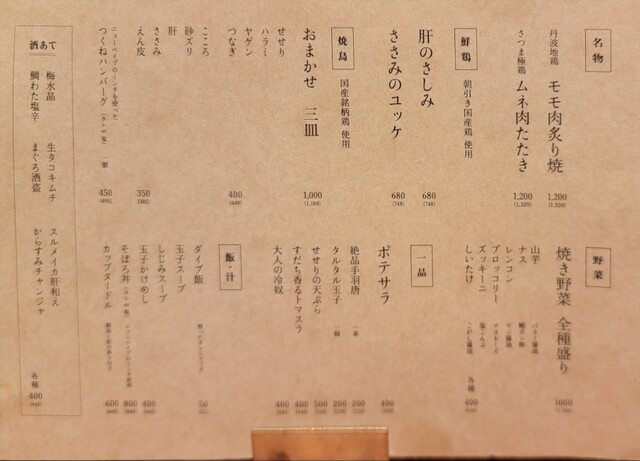 名物
丹波地鶏 モモ肉炙り焼 1,200 (1,320)
さつま極鶏 ムネ肉たたき 1,200 (1,320)
鮮鶏
朝引き国産鶏 使用
肝のさしみ 680 (748)
ささみのユッケ 680 (748)
焼鳥
国産銘柄鶏 使用
おまかせ 三皿 1,000 (1,100)
せせり
ハラミ
ヤゲン
つなぎ 400 (440)
こころ
砂ズリ
肝
ささみ
えん皮 350 (385)
ニューベイブのミンチを使った
つくねハンバーグ 一個 450 (495)
野菜
焼き野菜 全種盛り 1000
山芋 バター醤油
ナス
レンコン
ブロッコリー マヨネーズ
ズッキーニ
しいたけ 400
一品
ポテサラ 400
絶品手羽唐 一本 200
タルタル玉子 一個 200
せせりの天ぷら 500
すだち香るトマスラ 400
大人の冷奴 400
飯・汁
ダイブ飯 50
玉子スープ
しじみスープ
玉子かけめし 400
そぼろ丼 800
カップヌードル 600
酒あて
梅水晶 生タコキムチ スルメイカ肝和え
鯛わた塩辛 まぐろ酒盗 からすみチャンジャ
各種 400 (440)